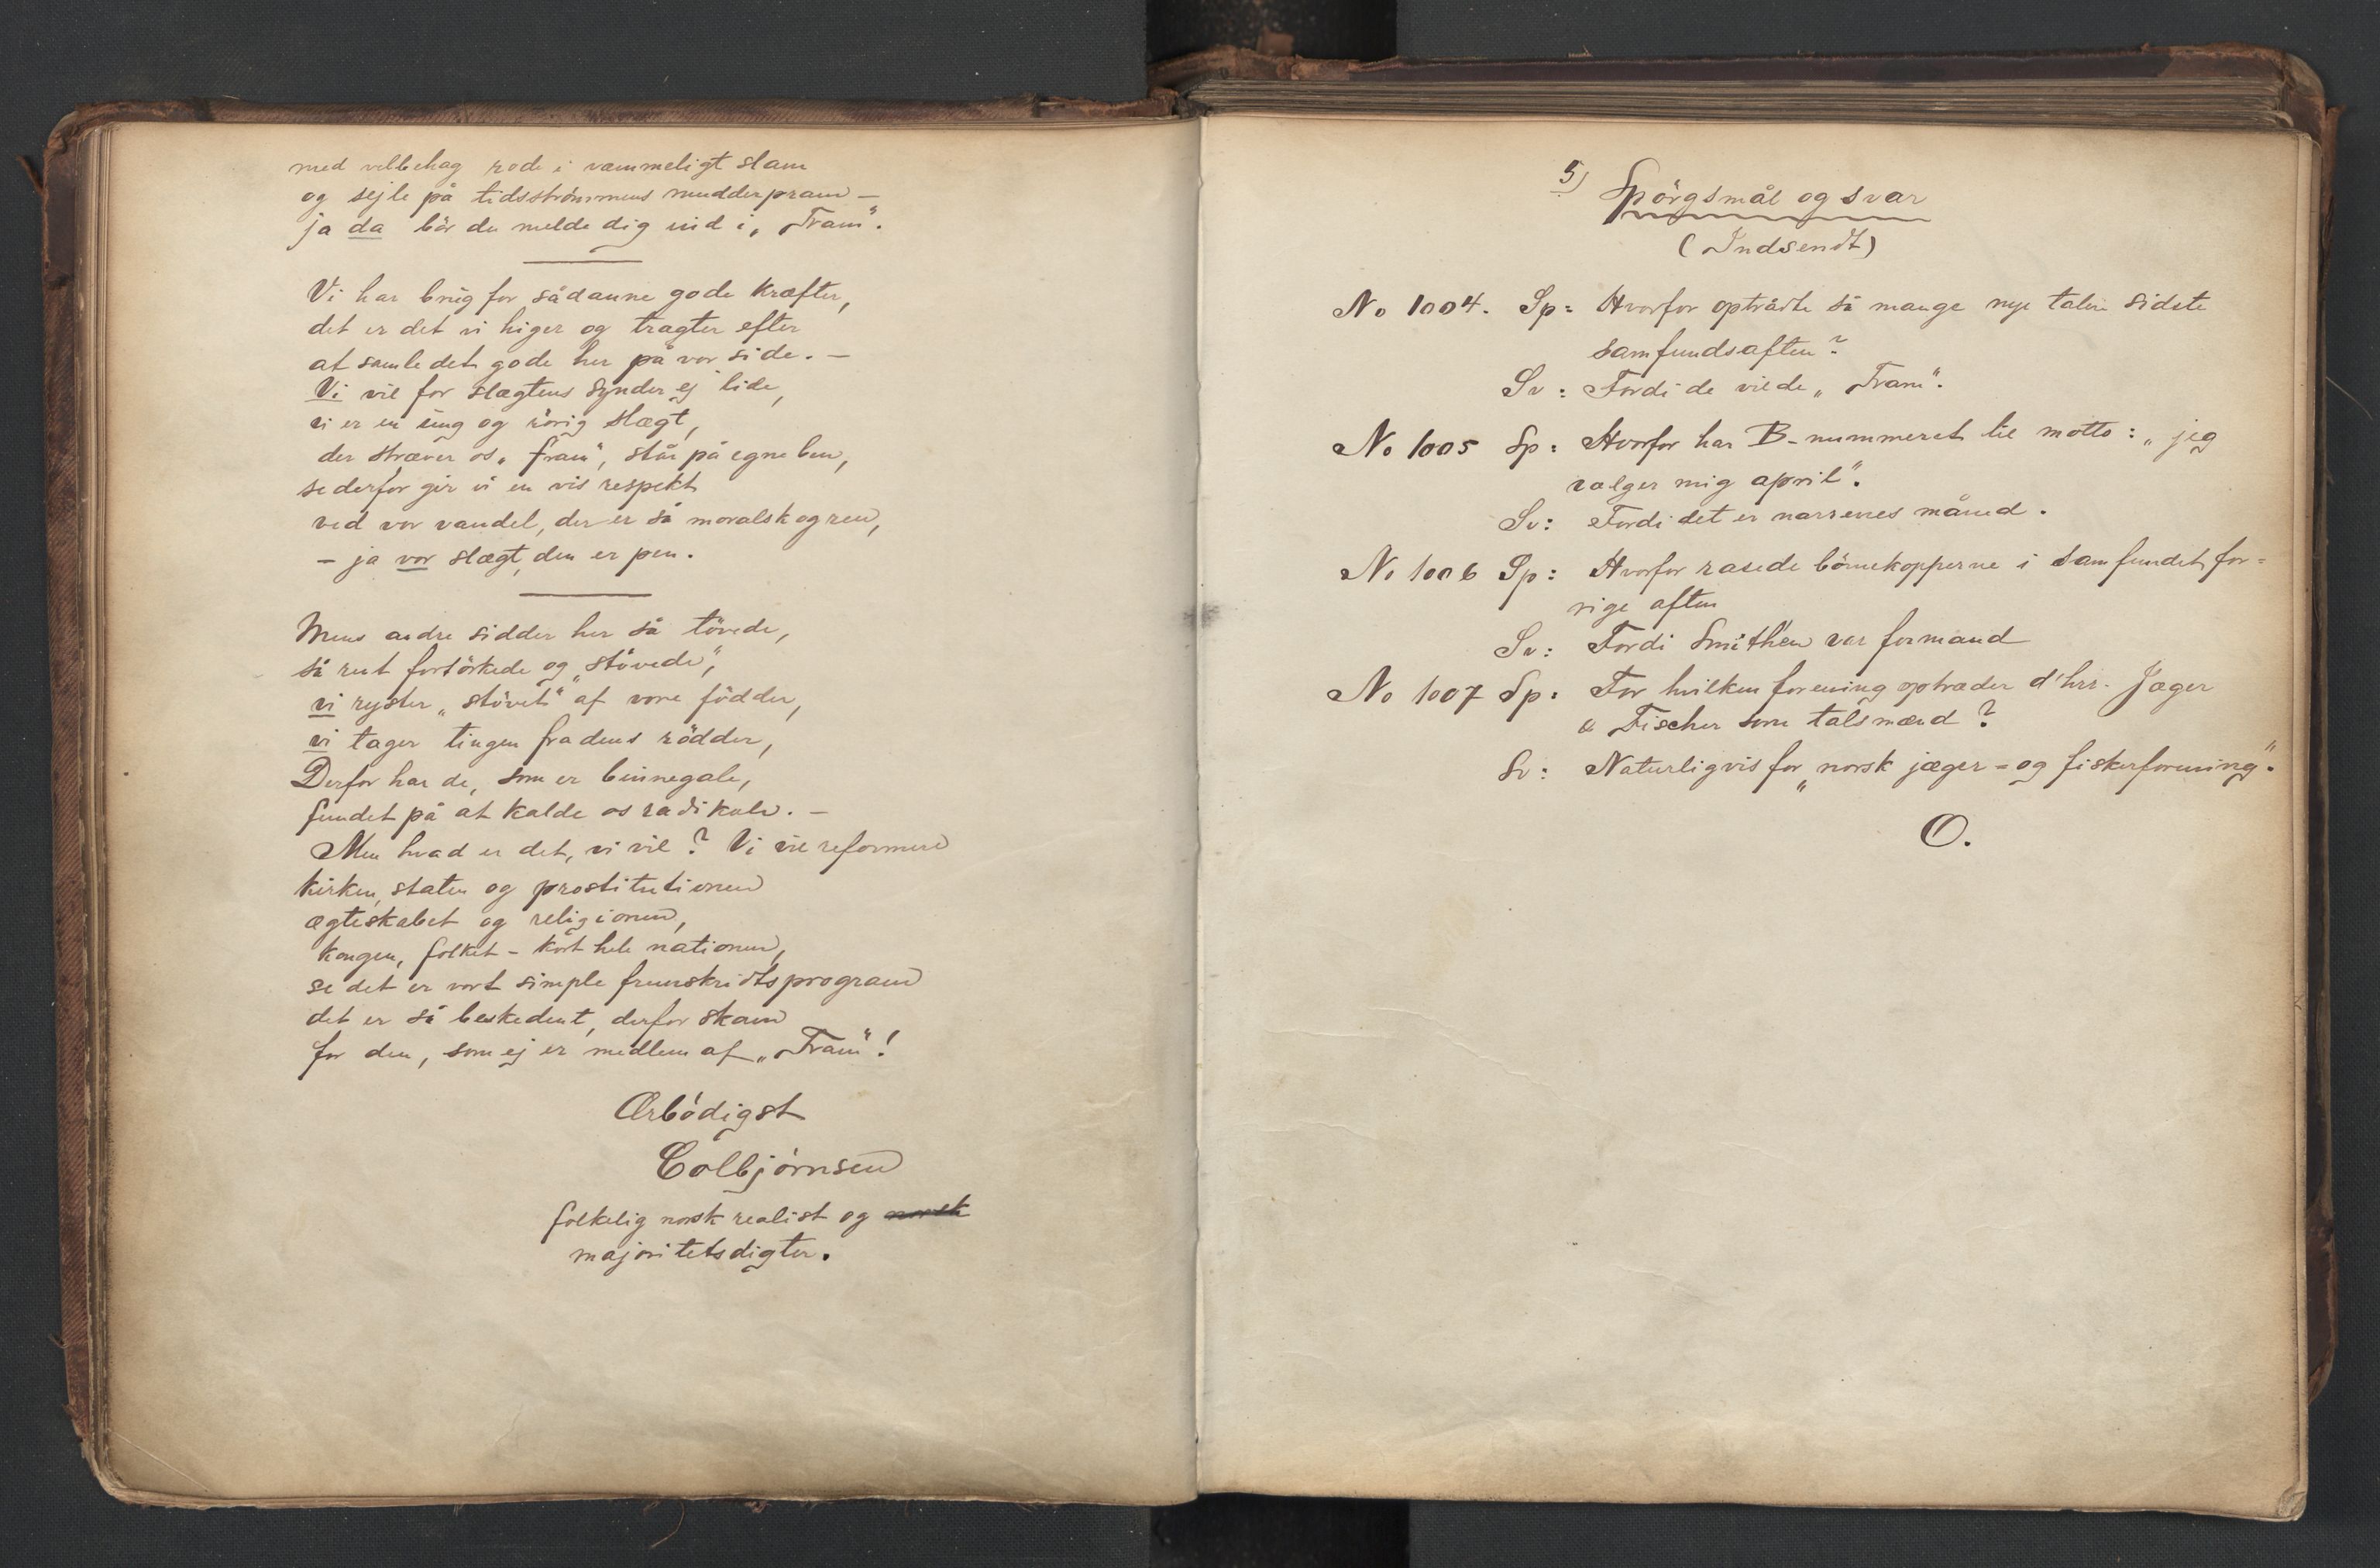 med velbehag rode i vammeligt slam
og sejle på tidsströmmens mudderpram –
ja da bör du melde dig ind i „Fram“.
Vi har brug for sådanne gode kræfter,
det er det vi higer og tragter efter
at samle det gode her på vor side. –
Vi vil for slægtens synder ej lide,
vi er en ung og rörig slægt,
der stræver os „fram“, står på egne ben,
se derfor gir vi en vis respekt
ved vor vandel, der er så moralsk og ren,
– ja vor slægt, den er pen.
Mens andre sidder her så tövede,
så rent fortörkede og „stövede“,
vi ryster „stövet“ af vore födder,
vi tager tingen fra dens rödder,
Derfor har de, som er binnegale,
fundet på at kalde os radikale. –
Men hvad er det, vi vil? Vi vil reformere
kirken, staten og prostitutionen
ægteskabet og religionen,
kongen, folket – kort hele nationen,
se det er vort simple fremskridtsprogram
det er så beskedent, derfor skam
for den, som ej er medlem af „Fram“!
Ærbödigst
Colbjörnsen
folkelig norsk realist og norsk
majoritetsdigter.
5) Spörgsmål og svar
(Indsendt)
No 1004. Sp: Hvorfor optrådte så mange nye talere sidste
samfundsaften?
Sv: Fordi de vilde „Fram“.
No 1005 Sp: Hvorfor har B-nummeret til motto: „jeg
vælger mig april“.
Sv: Fordi det er narrenes måned.
No 1006 Sp: Hvorfor rasede börnekopperne i samfundet for=
rige aften
Sv: Fordi Smithen var formand
No 1007 Sp: For hvilken forening optræder d'hrr. Jæger
& Fischer som talsmænd?
Sv: Naturligvis for „norsk jæger= og fiskerforening“.
O.